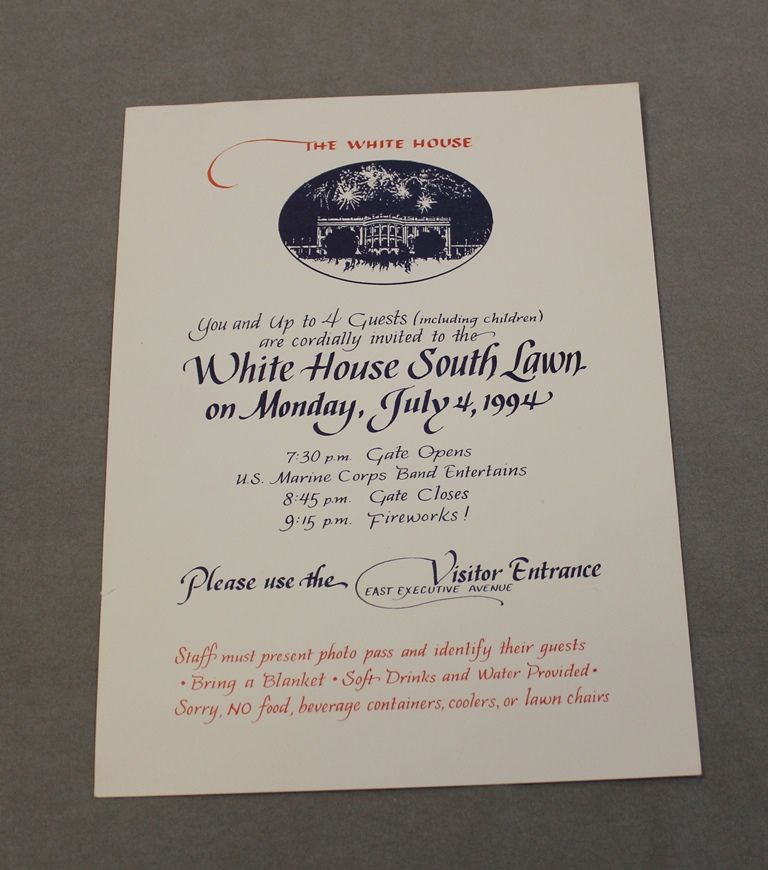 THE WHITE HOUSE
You and Up to 4 Guests (including children)
are cordially invited to the
White House South Lawn
on Monday, July 4, 1994
7:30 p.m. Gate Opens
U.S. Marine Corps Band Entertains
8:45 p.m. Gate Closes
9:15 p.m. Fireworks!
Please use the Visitor Entrance
EAST EXECUTIVE AVENUE
Staff must present photo pass and identify their guests
• Bring a Blanket • Soft Drinks and Water Provided •
Sorry, NO food, beverage containers, coolers, or lawn chairs